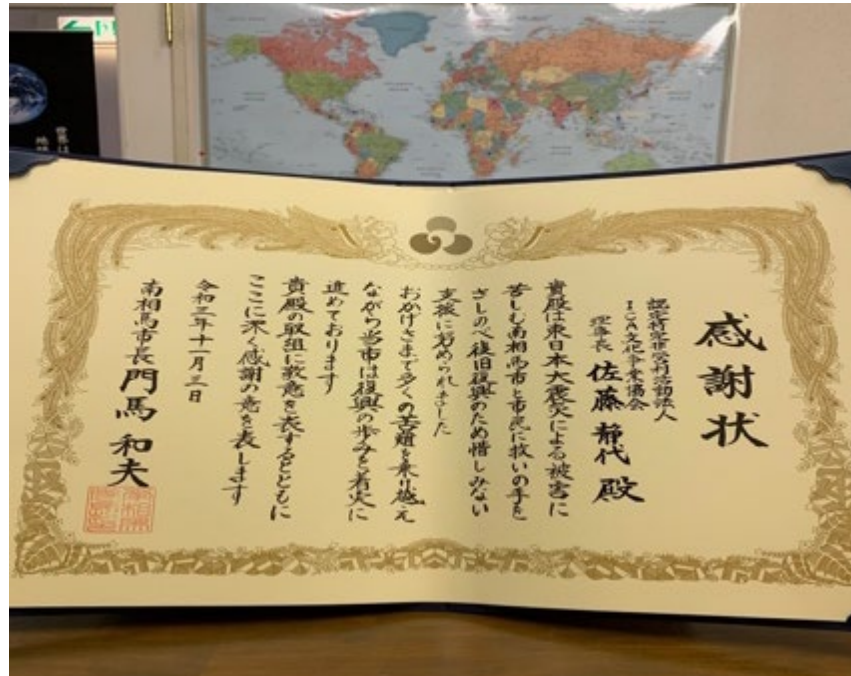 感謝状
認定特定非営利活動法人
ICA文化事業協会
理事長 佐藤静代 殿
貴殿は東日本大震災による被害に
苦しむ南相馬市と市民に救いの手を
さしのべ復旧復興のため惜しみない
支援に努められました
おかげさまで多くの苦難を乗り越え
ながら当市は復興の歩みを着実に
進めております
貴殿の取組に敬意を表するとともに
ここに深く感謝の意を表します
令和三年十一月三日
南相馬市長 門馬和夫
世界は